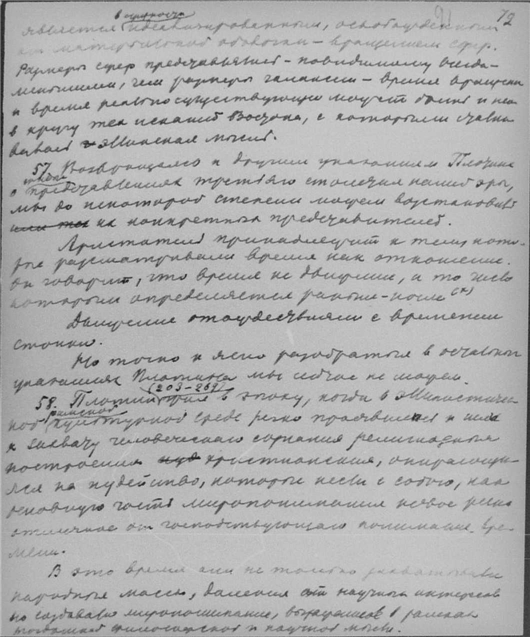 72
в сущности
является идеализированным, освобожденным
от материальной оболочки – вращением сфер.
Размеры сфер представлялись – по-видимому
чем размеры галактик – время вращения
и время реально существующих может быть и не
в кругу тех исканий Востока, с которыми
эллинская мысль.
57. Возвращаясь к другим указаниям Плотина
о представлениях третьего столетия нашей эры,
мы до некоторой степени можем восстановить
на конкретных представителей.
Аристотель принадлежит к тем, кото-
рые рассматривали время как отношение.
Он говорит, что время не движение, а то число
которым определяется раньше – после
Движение отождествляли с временем
стоики.
Но точно и ясно разобраться в остальных
указаниях Плотина мы сейчас не можем.
(203–269)
58. Плотин в эпоху, когда в эллинистичес-
римской
кой культурной среде резко проявились
к захвату человеческого сознания религиозные
построения христианства, опирающи-
еся на иудейство, которые несли с собою, как
основную часть миропонимания новое резко
отличное от господствующего понимание вре-
мени.
В это время они не только захватывали
народные массы, далекие от научных интересов
но создавали миропонимание, в рамках
тогдашней философской и научной мысли.